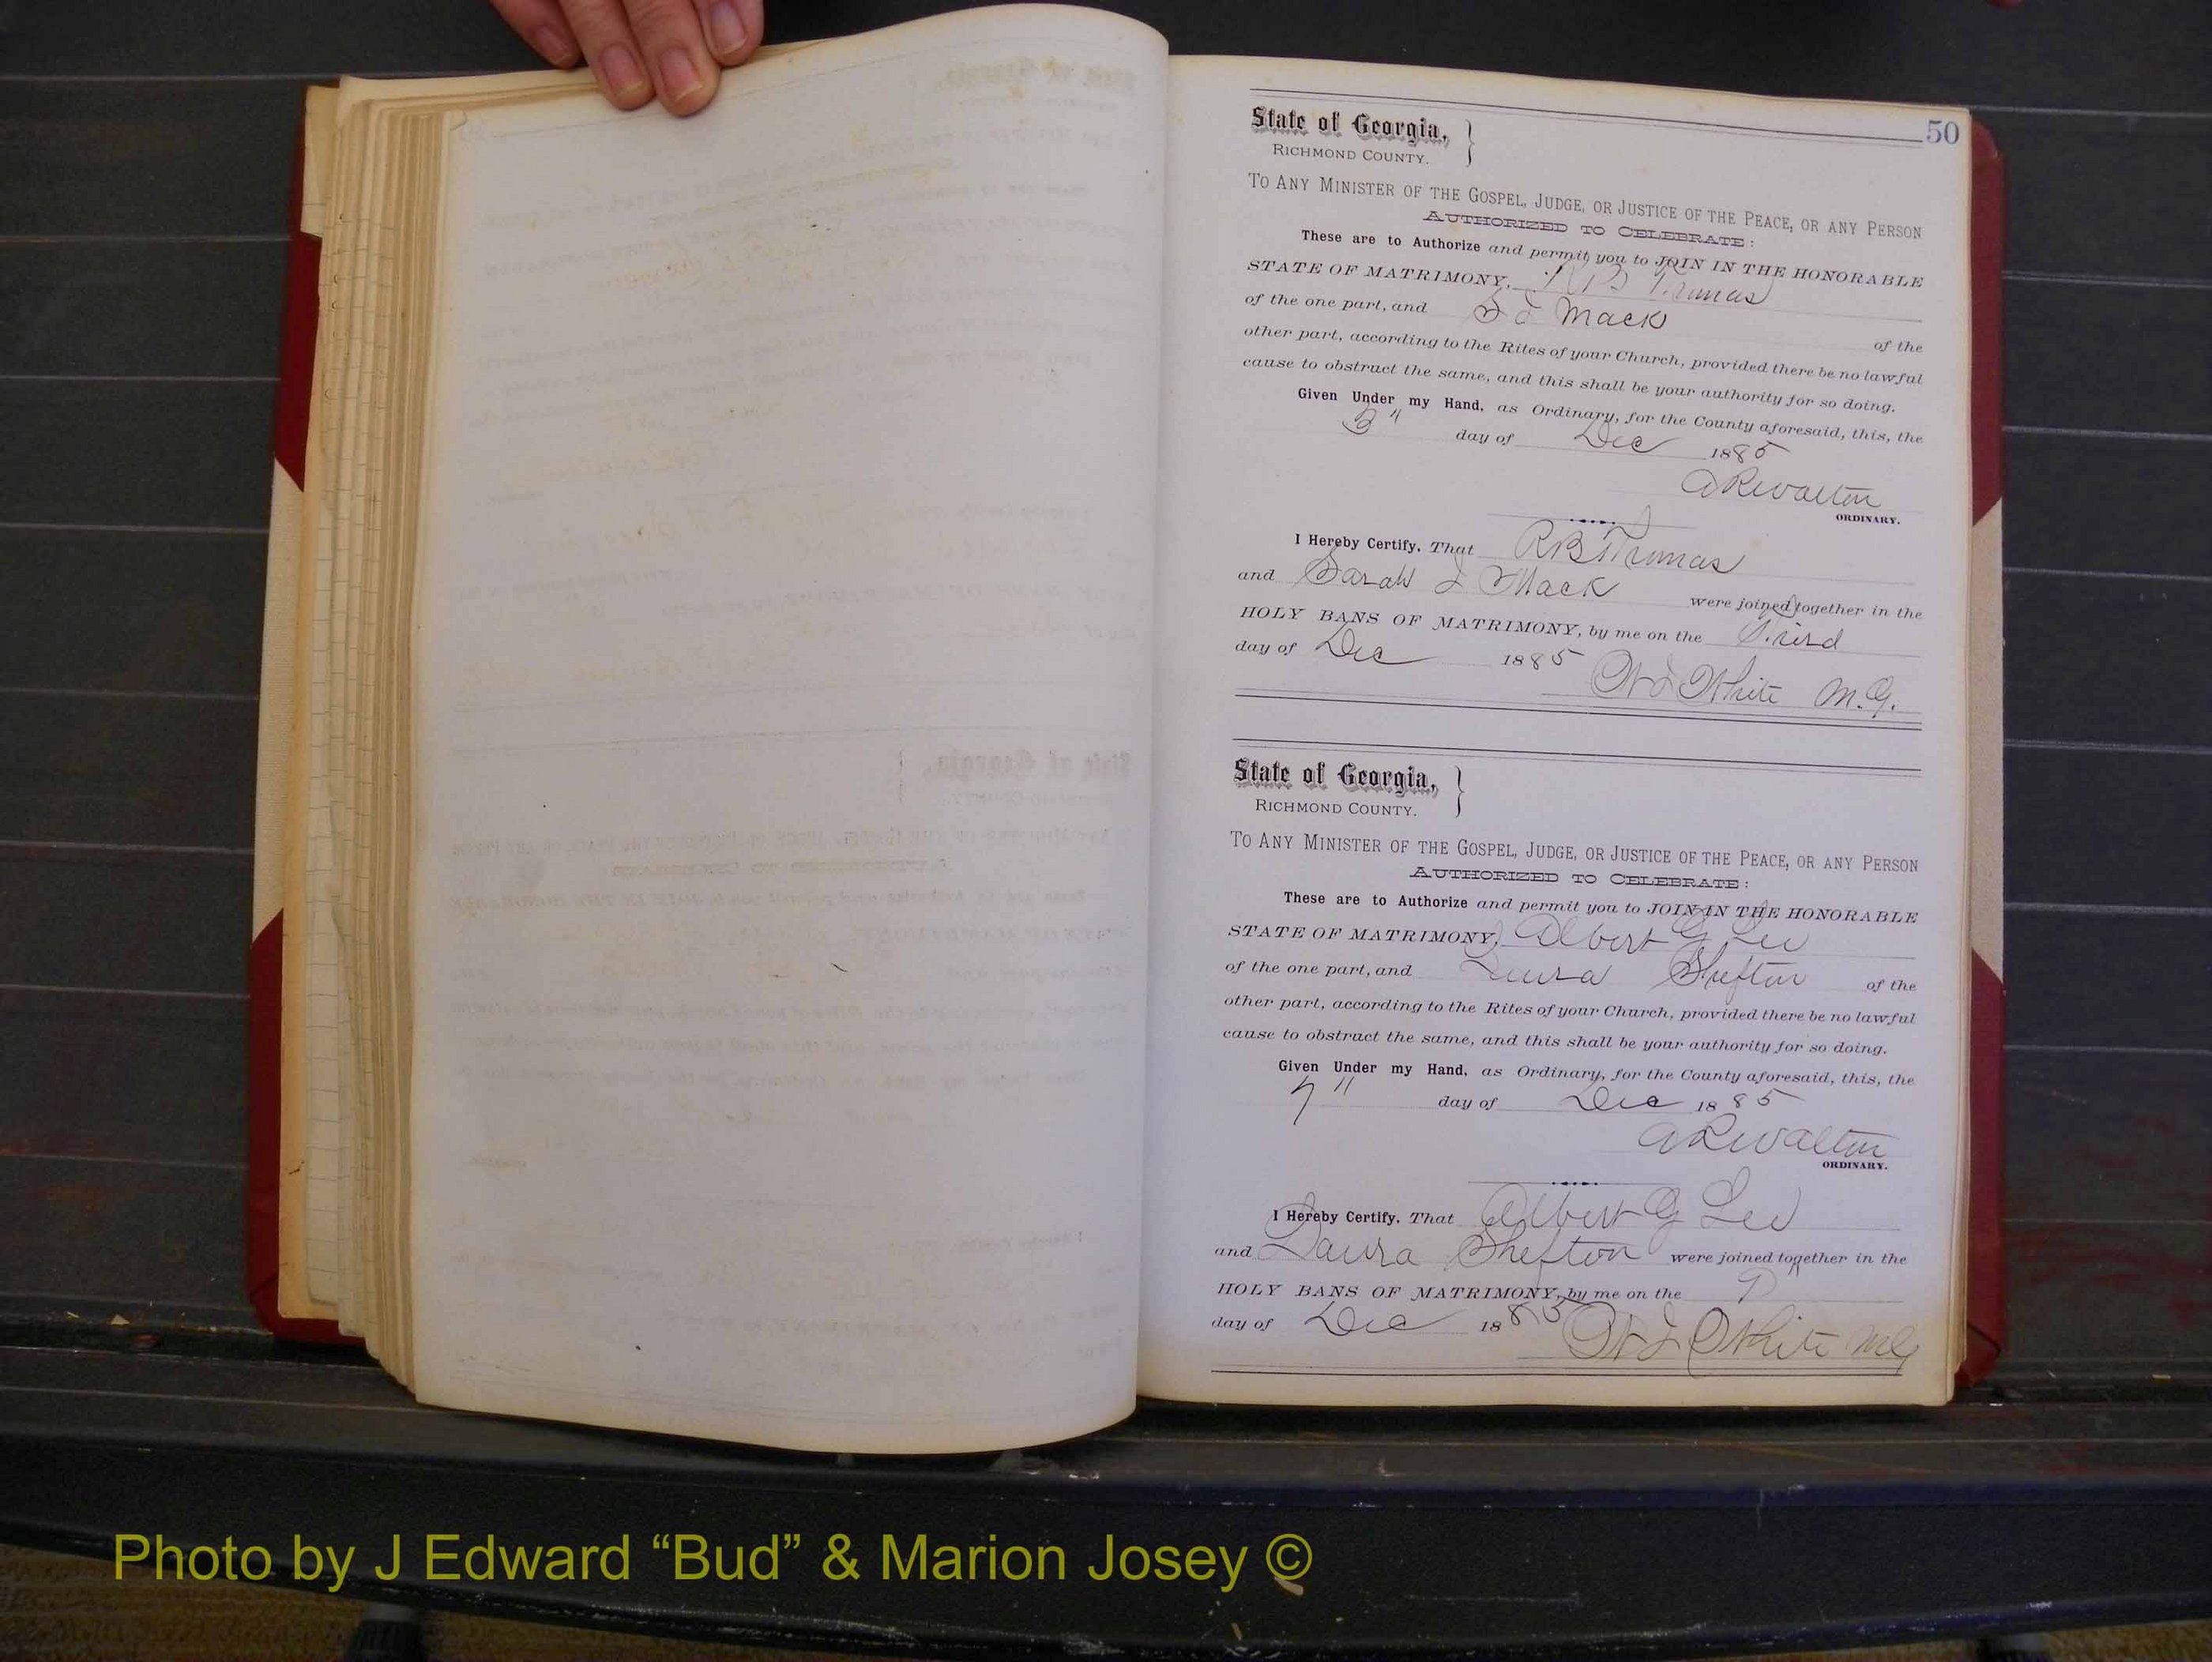 50
State of Georgia, }
RICHMOND COUNTY.
TO ANY MINISTER OF THE GOSPEL, JUDGE, OR JUSTICE OF THE PEACE, OR ANY PERSON
AUTHORIZED TO CELEBRATE:
These are to Authorize and permit you to JOIN IN THE HONORABLE
STATE OF MATRIMONY, R B Thomas
of the one part, and S J Mack of the
other part, according to the Rites of your Church, provided there be no lawful
cause to obstruct the same, and this shall be your authority for so doing.
Given Under my Hand, as Ordinary, for the County aforesaid, this, the
3" day of Dec 1885
A R Walton
ORDINARY.
I Hereby Certify, That R B Thomas
and Sarah J Mack were joined together in the
HOLY BANS OF MATRIMONY, by me on the Third
day of Dec 1885 W J White M.G.
State of Georgia, }
RICHMOND COUNTY.
TO ANY MINISTER OF THE GOSPEL, JUDGE, OR JUSTICE OF THE PEACE, OR ANY PERSON
AUTHORIZED TO CELEBRATE:
These are to Authorize and permit you to JOIN IN THE HONORABLE
STATE OF MATRIMONY, Albert G Lee
of the one part, and Laura Shefton of the
other part, according to the Rites of your Church, provided there be no lawful
cause to obstruct the same, and this shall be your authority for so doing.
Given Under my Hand, as Ordinary, for the County aforesaid, this, the
7" day of Dec 1885
A R Walton
ORDINARY.
I Hereby Certify, That Albert G Lee
and Laura Shefton were joined together in the
HOLY BANS OF MATRIMONY, by me on the
day of Dec 1885 W J White MG
Photo by J Edward “Bud” & Marion Josey ©